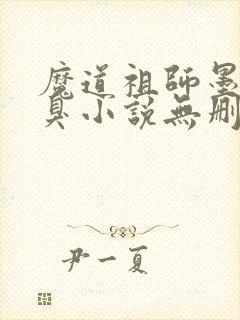 魔道祖師墨
臭小說無刪
尹一夏